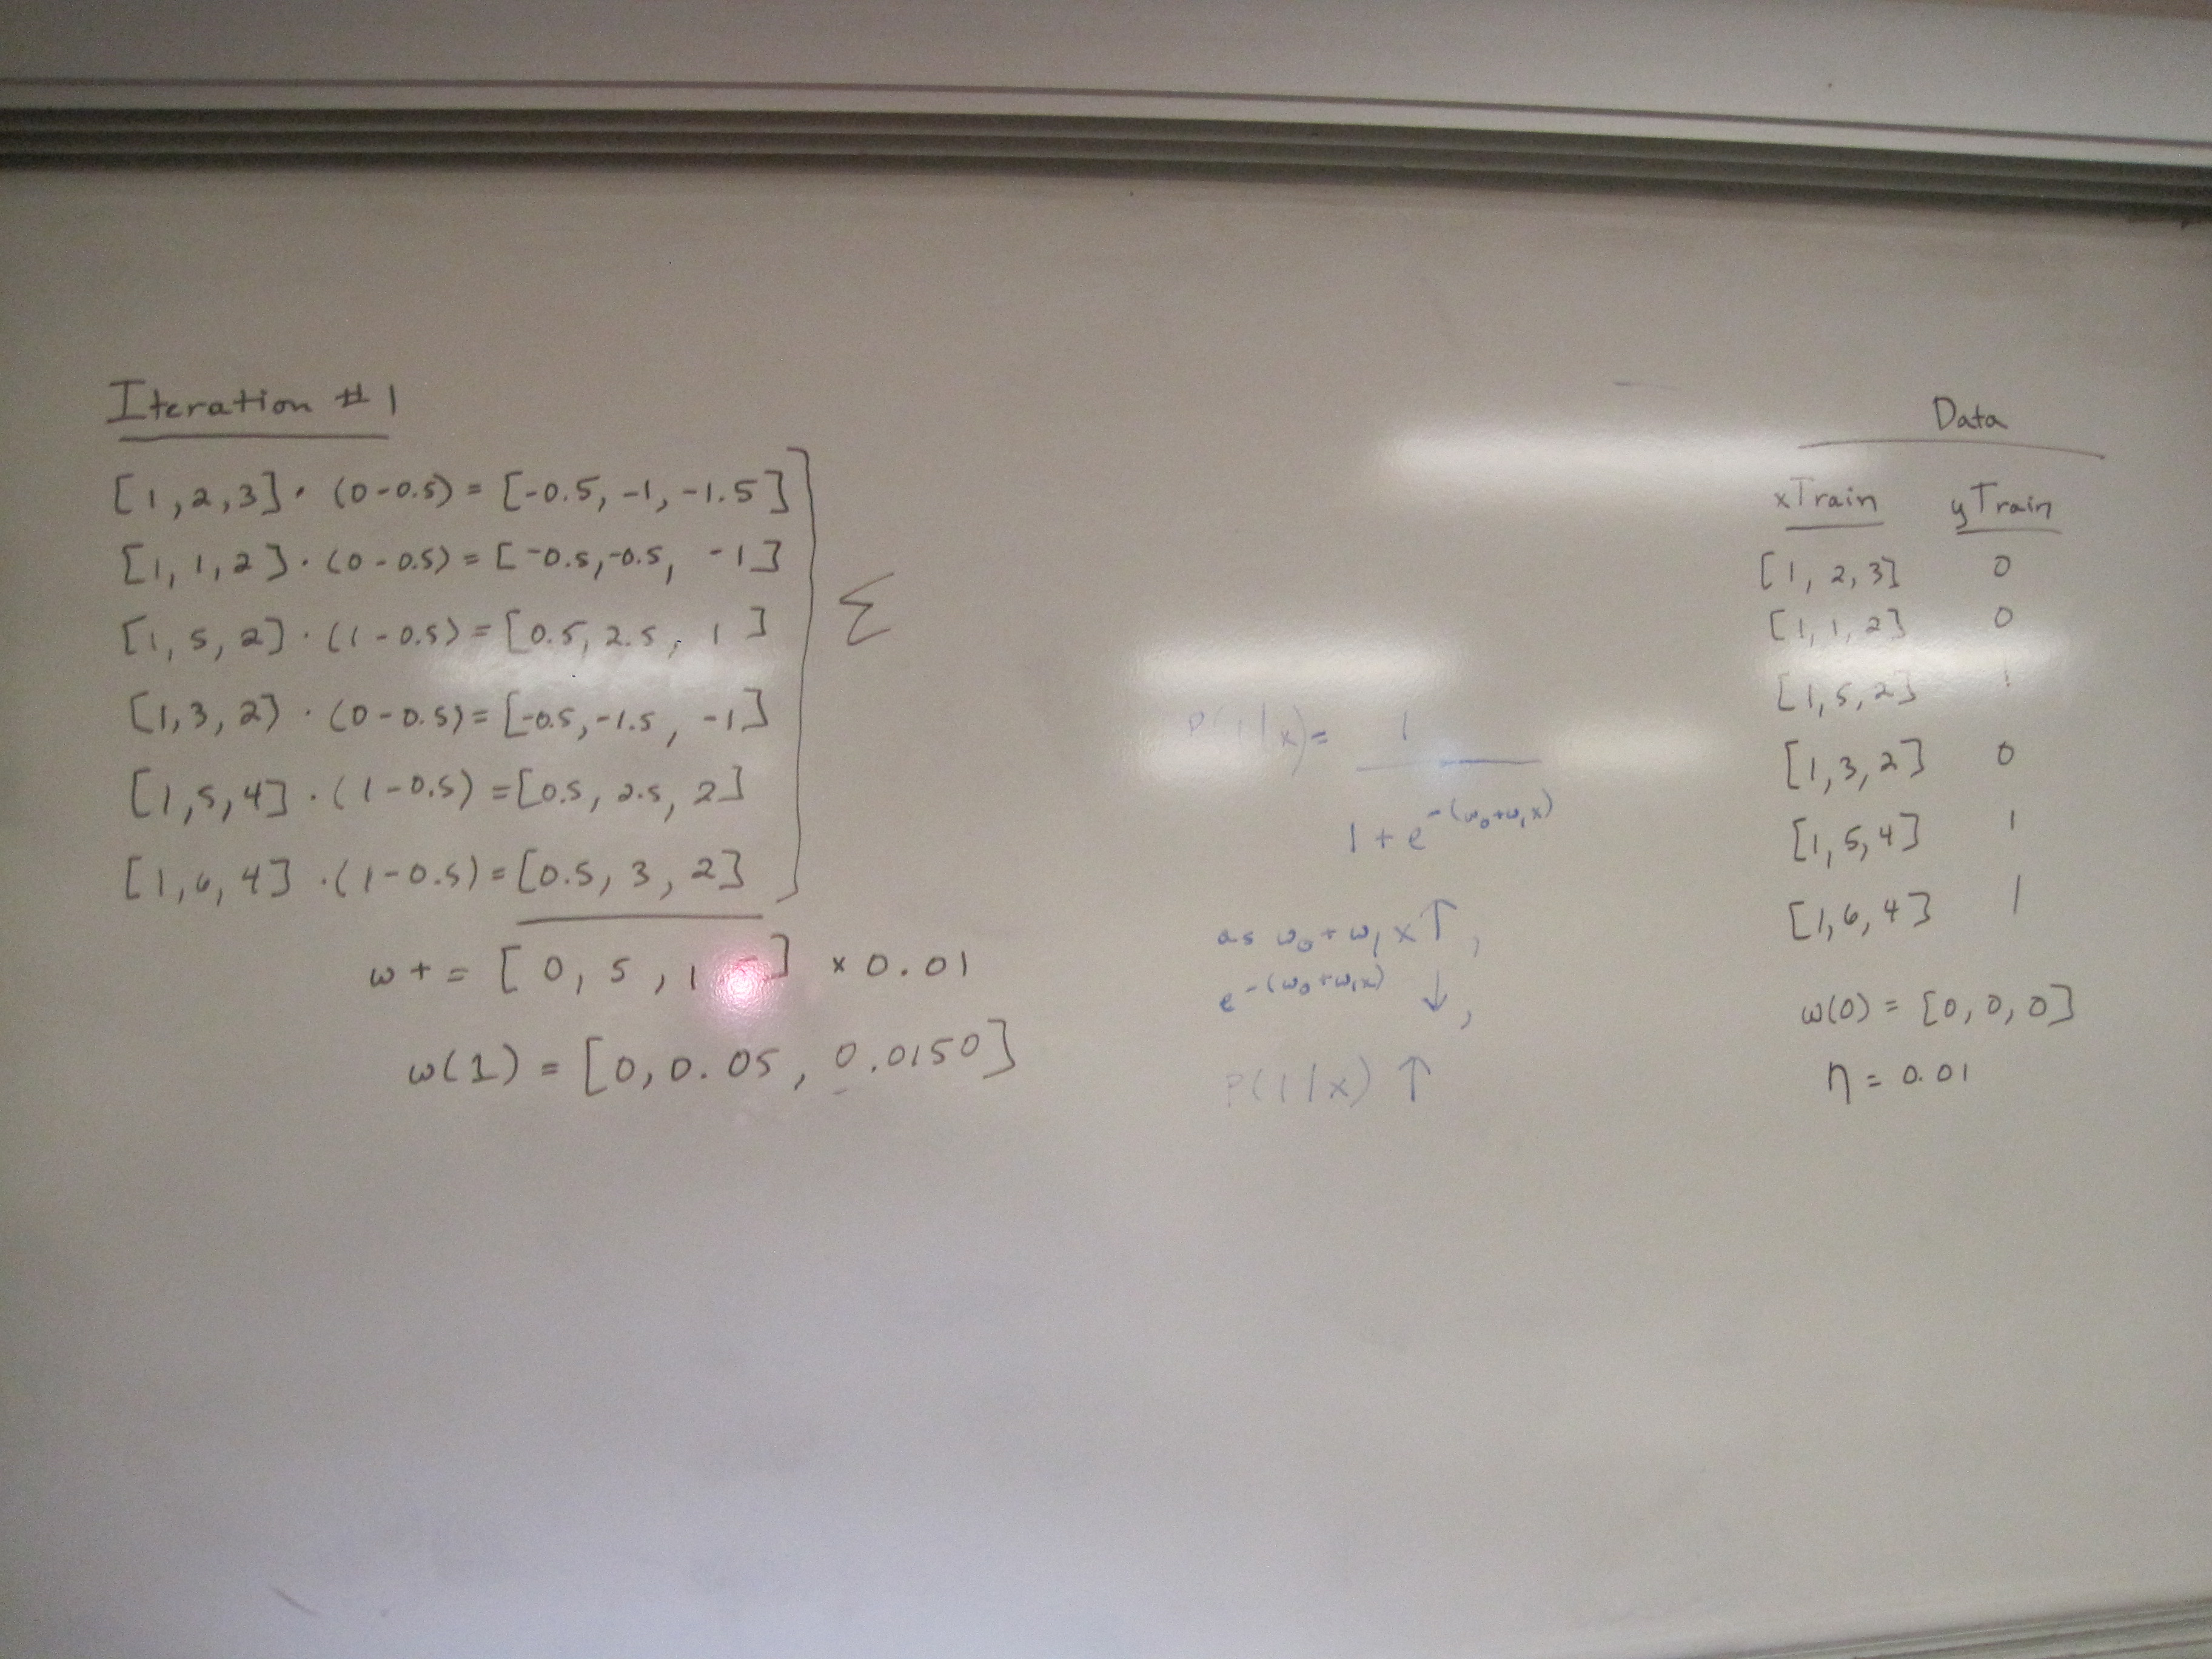 Iteration #1
[1,2,3] · (0-0.5) = [-0.5, -1, -1.5]
[1,1,2] · (0-0.5) = [-0.5,-0.5, -1]
[1,5,2] · (1-0.5) = [0.5, 2.5, 1]
[1,3,2] · (0-0.5) = [-0.5,-1.5, -1]
[1,5,4] · (1-0.5) = [0.5, 2.5, 2]
[1,6,4] · (1-0.5) = [0.5, 3, 2]
Σ
w += [0, 5, 1 ] × 0.01
w(1) = [0, 0.05, 0.0150]
P(1|x) = 1
1 + e^-(w₀+w₁x)
as w₀+w₁x ↑,
e^-(w₀+w₁x) ↓,
P(1|x) ↑
Data
xTrain yTrain
[1, 2, 3] 0
[1, 1, 2] 0
[1, 5, 2] 1
[1, 3, 2] 0
[1, 5, 4] 1
[1, 6, 4] 1
w(0) = [0, 0, 0]
η = 0.01